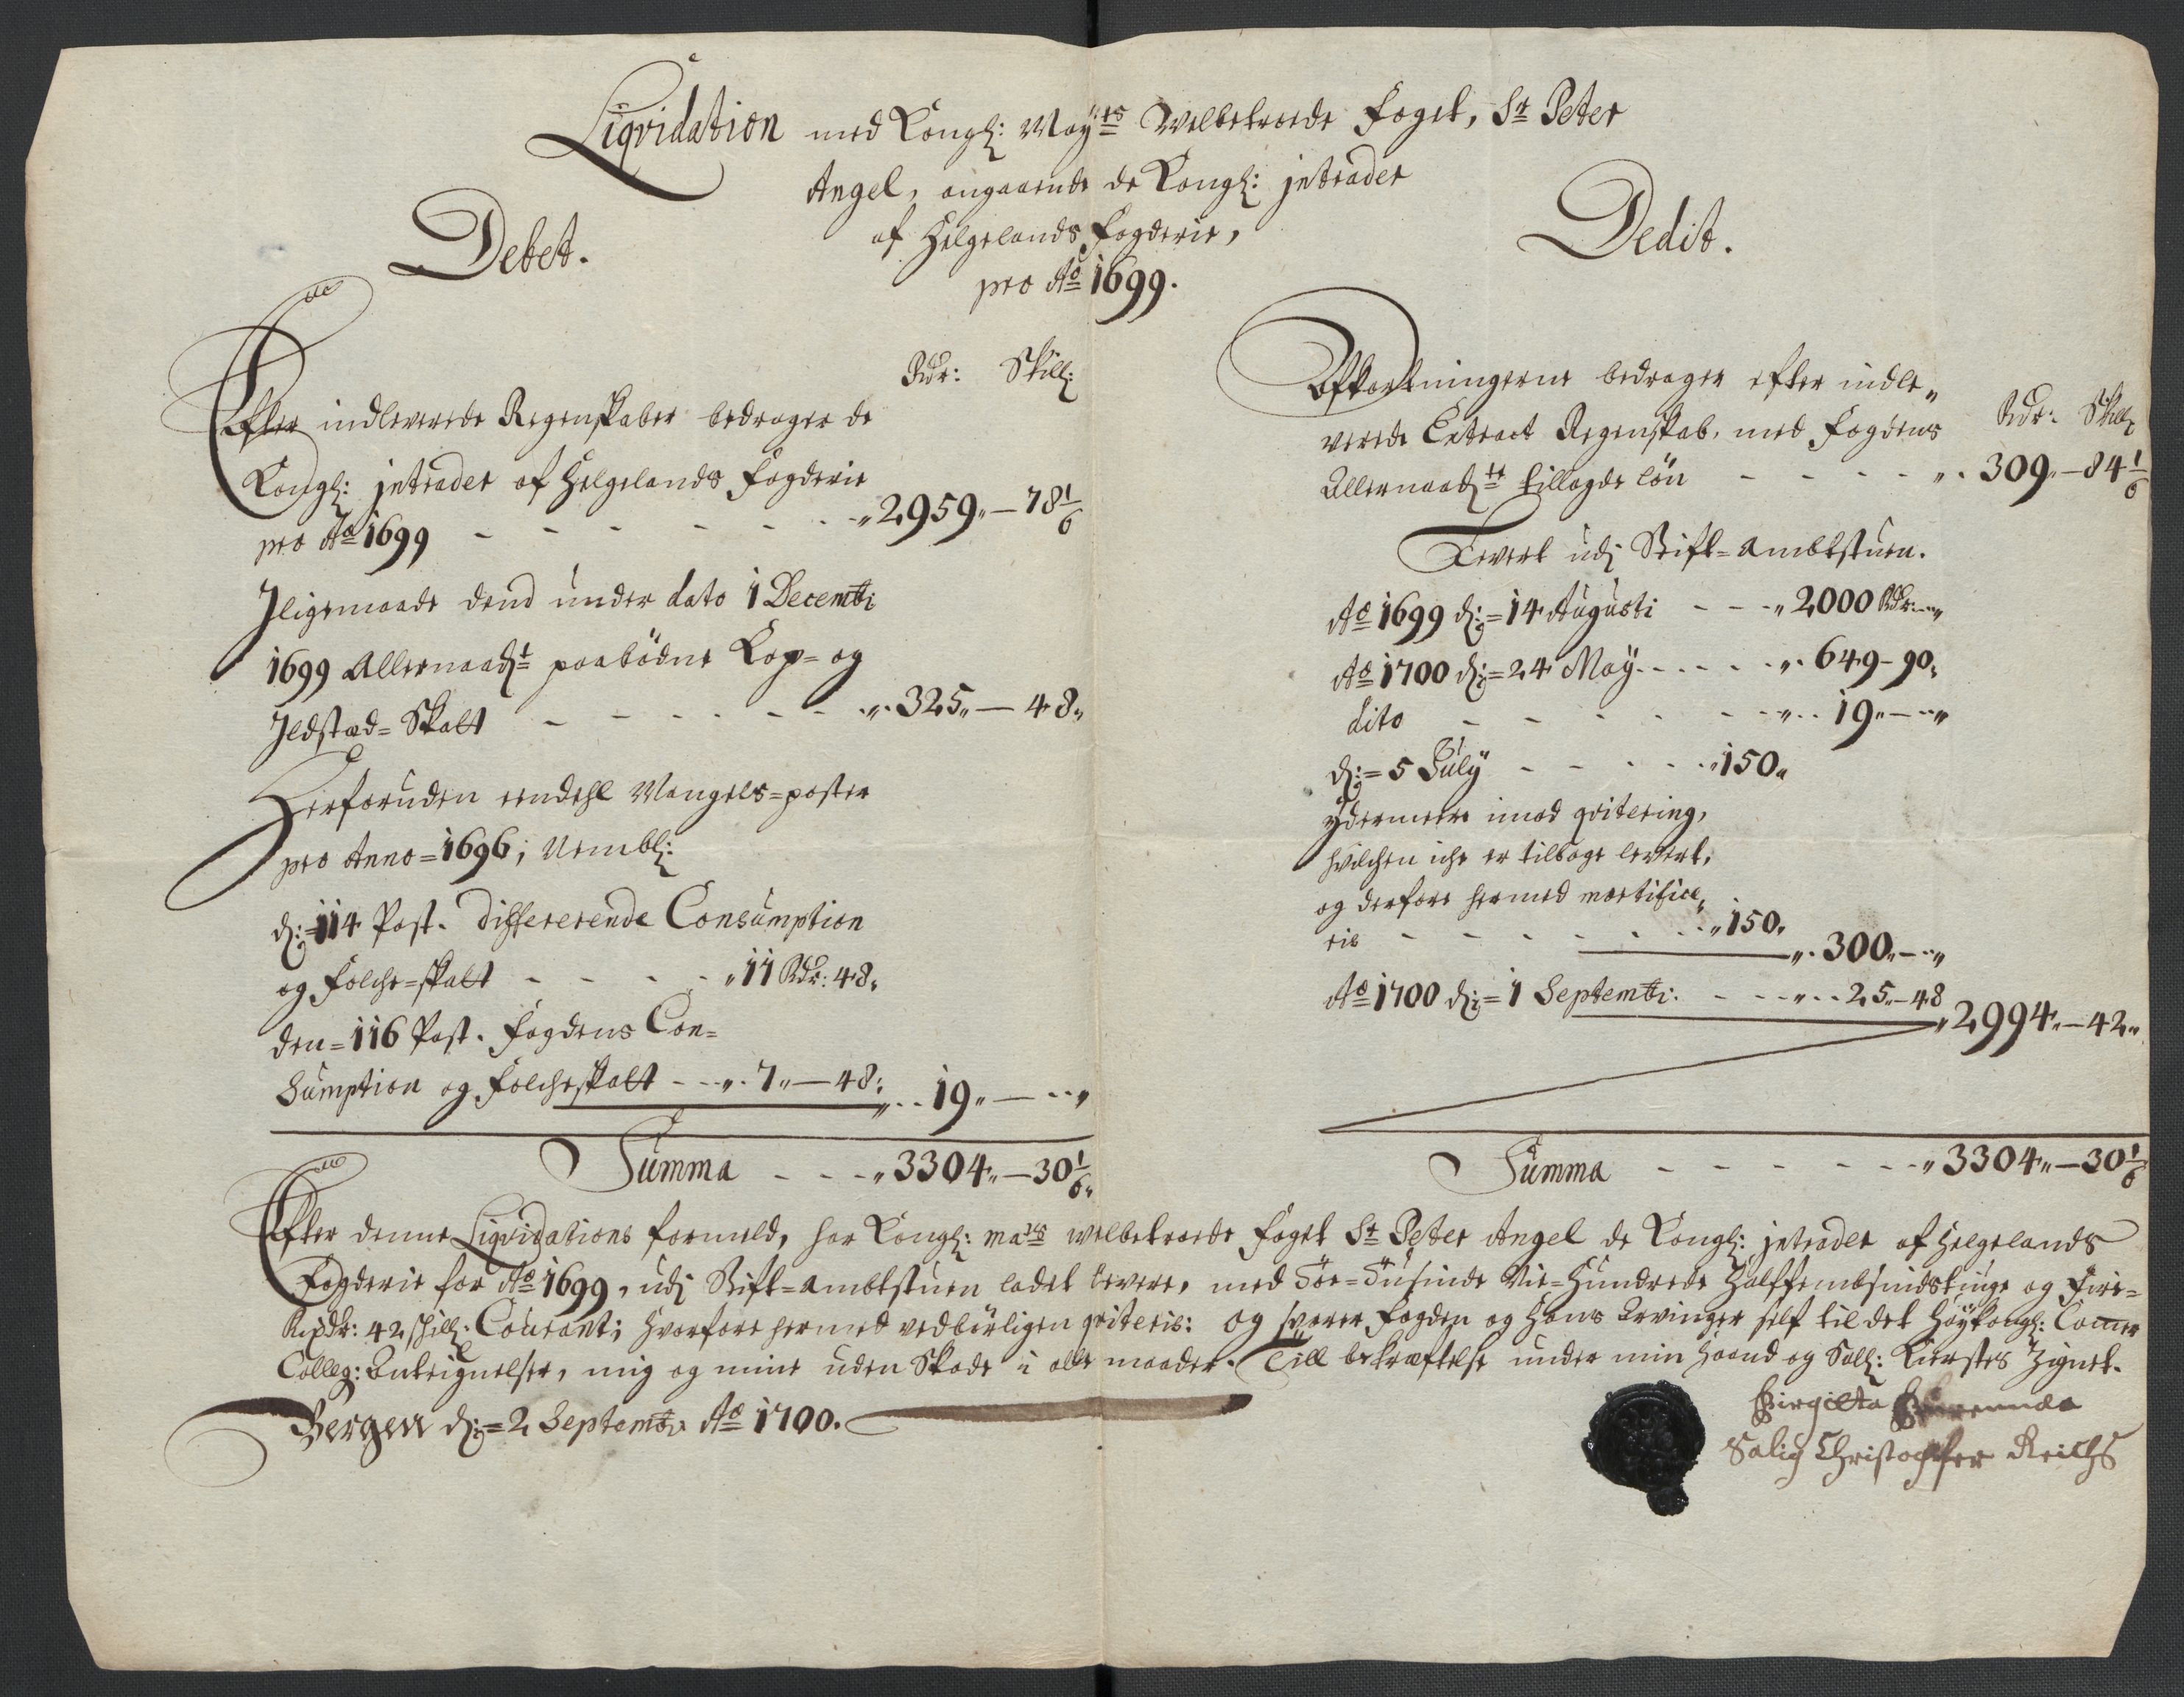 Liqvidation med Kongl: May:ts Welbetroede Foget, Sr Peter
Angel, angaaende de Kongl: jntrader
af Helgelands Fogderie,
pro Ao 1699.
Debet.
Rdr: Skill:
Efter indleverede Regenskaber bedrager de
Kongl: jntrader af Helgelands Fogderie
pro Ao 1699 - - - - - - - „2959„ — 78 1/6
Jligemaade dend under dato 1 Decembr:
1699 Allernaadst paabödne Kop= og
Jldstæd=Skatt - - - - - - „325„ — 48„
Herforuden eendehl Mangels=poster
pro Anno=1696; Nembl:
d:=114 Post. differerende Consumption
og Folche=skatt - - - - „11 Rdr: 48„
den=116 Post. Fogdens Con=
sumption og Folcheskatt - - - „7„ — 48:
„ - - 19„ — - - „
Summa - - - „3304„ — 30 1/6„
Dedit.
Afkortningerne bedrager efter indle„
verede Extract Regenskab, med Fogdens
Rdr: Skill:
Allernaadst tillagde lön - - - - „ 309„ — 84 1/6
Levert udj Stift=ambtstuen.
Ao 1699 d:=14 Augusti - - - „2000 Rdr: - - „
Ao 1700 d:=24 May - - - - - „ 649 - 90„
dito - - - - - - - „ - - 19„ — - - „
d:=5 July - - - - - „150„
ydermeere imod qvitering,
hvilchen iche er tilbage levert,
og derfore hermed mortifice„
ris - - - - - - - „150„
„ 300„ — - - „
Ao 1700 d:=1 Septembr: - - - „ - - 25„ — 48
„2994„ — 42„
Summa - - - - - - - „3304„ — 30 1/6
Efter denne Liqvidations formeld, har Kongl: Mayts welbetroede Foget Sr Peter Angel de Kongl: jntrader af Helgelands
Fogderie for Ao 1699, udj Stift=ambtstuen ladet levere, med Toe=Tusinde Nie=Hundrede Halffembsindstiuge og Fire=
Rixdr: 42 skill: Courant; hvorfore hermed vedbörligen qviteris: og svarer Fogden og Hans Arvinger self til det Höykongl: Camer
Colleg: Antegnelser, mig og mine uden Skade i alle maader. Till bekræftelse under min Haand og Sall: Kierstes Zignet.
Bergen d:=2 Septembr: Ao 1700.
Birgitta
Salig Christopffer Reichs